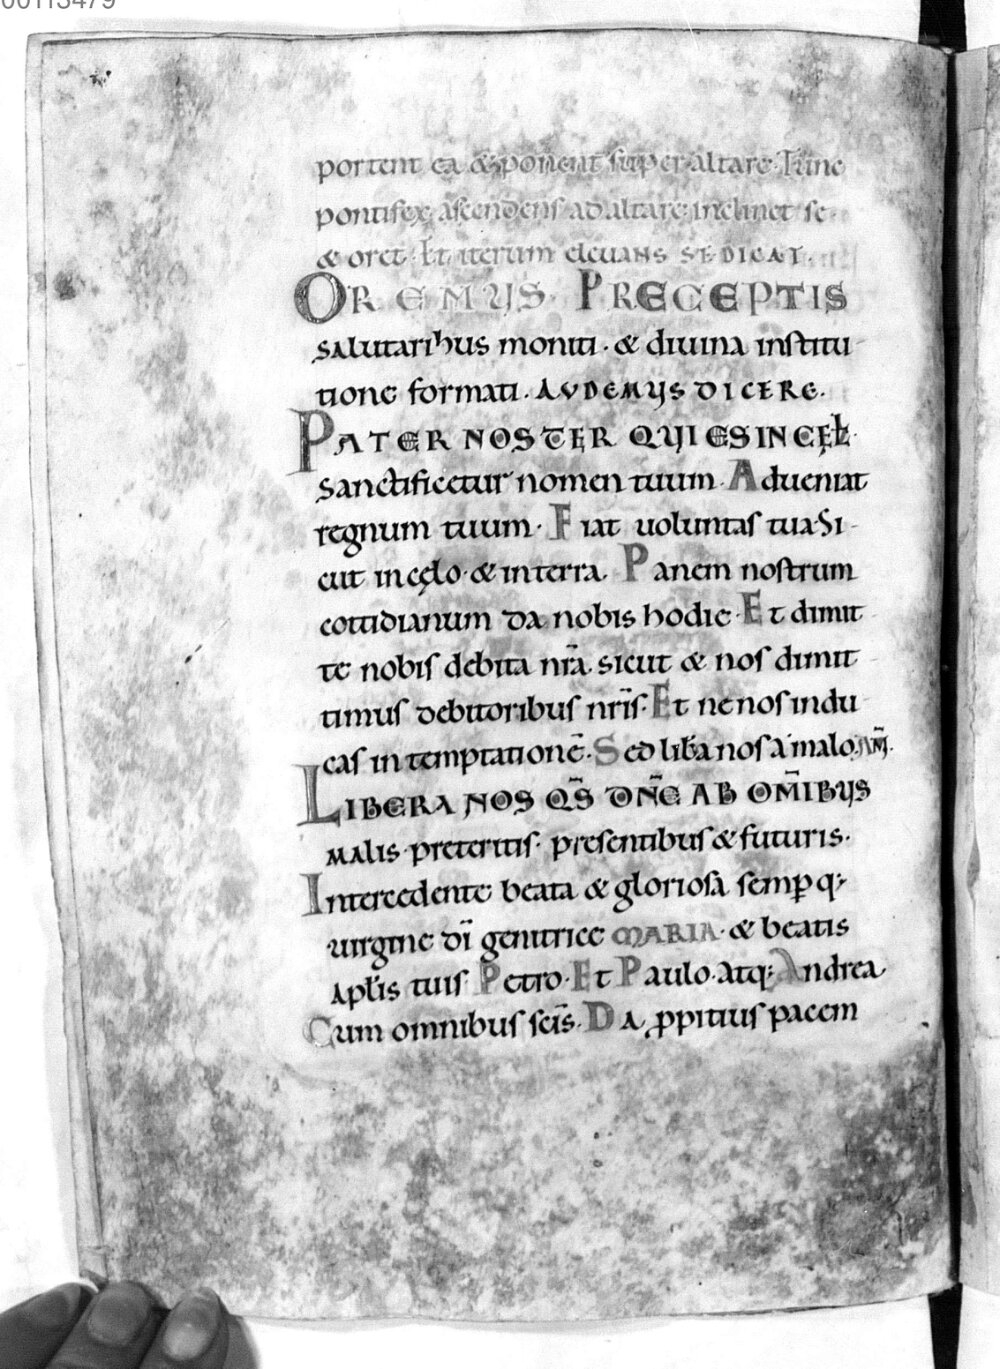 00113479
portent ea & ponent super altare. Tunc
pontifex ascendens ad altare inclinet se
& oret. Et iterum eleuans se dicat.
OREMUS. PRECEPTIS
salutaribus moniti. & diuina institu
tione formati. AUDEMUS DICERE.
PATER NOSTER QUI ES IN CĘŁ.
Sanctificetur nomen tuum. Adueniat
regnum tuum. Fiat uoluntas tua. Si
cut in cęlo. & in terra. Panem nostrum
cottidianum da nobis hodie. Et dimit
te nobis debita nr̄a. sicut & nos dimit
timus debitoribus nr̄is. Et ne nos indu
cas in temptationē. Sed lib̄a nos a malo. AM̄.
LIBERA NOS QS̄ DN̄E AB OM̄IBUS
malis. preteritis. presentibus & futuris.
Intercedente beata & gloriosa semꝑq;
uirgine dī genitrice MARIA. & beatis
apƚis tuis Petro. Et Paulo. atq; Andrea.
Cum omnibus sc̄is. Da ꝓpitius pacem